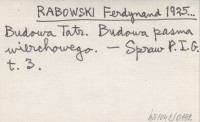 RABOWSKI Ferdynand 1925...
Budowa Tatr. Budowa pasma
wierchowego. — Spraw P.I.G.
t. 3.